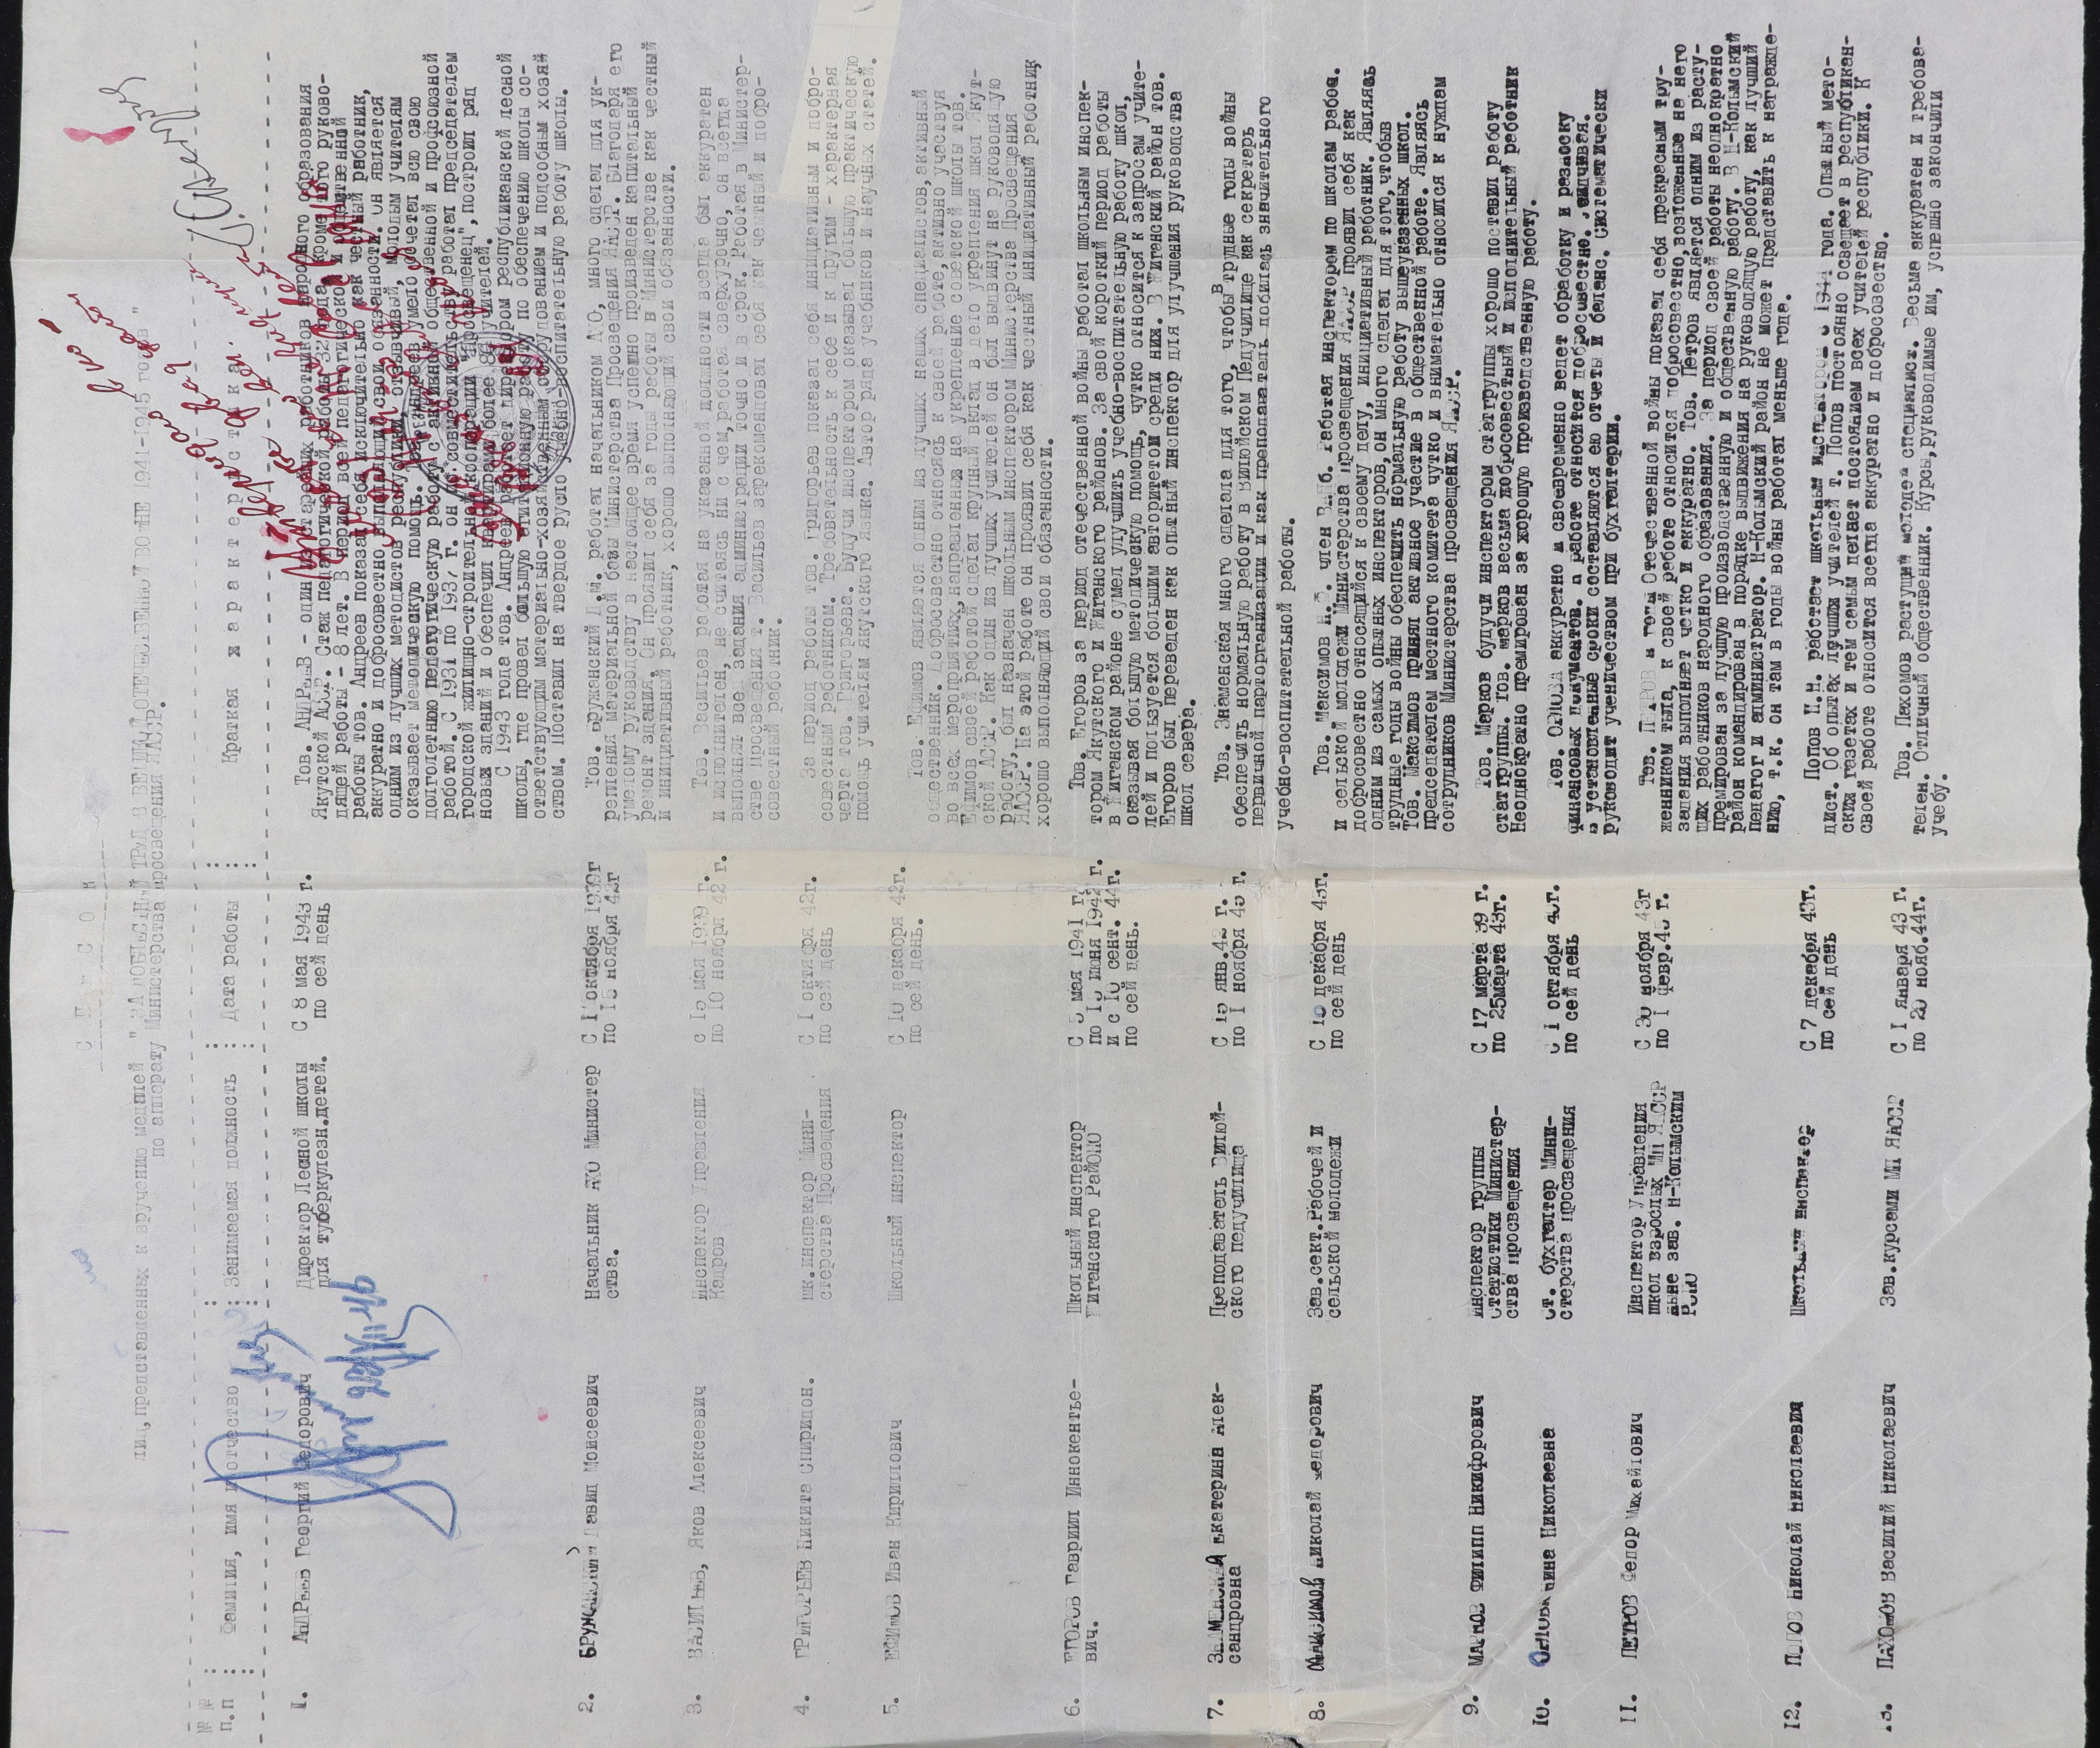 С П И С О К
лиц, представленных к вручению медалей "ЗА ДОБЛЕСТНЫЙ ТРУД В ВЕЛИКОЙ ОТЕЧЕСТВЕННОЙ ВОЙНЕ 1941-1945 годов"
по аппарату Министерства Просвещения ЯАССР.
№ №
п.п
Фамилия, имя и отчество
Занимаемая должность
Дата работы
Краткая характеристика
1.
АНДРЕЕВ Георгий Федорович
Директор Лесной школы
для туберкулезн.детей.
С 8 мая 1943 г.
по сей день
Тов. АНДРЕЕВ - один из старейших работников народного образования
Якутской АССР. Стаж педагогической работы 32 года, кроме того руково-
дящей работы - 8 лет. В период всей педагогической и общественной
работы тов. Андреев показал себя исключительно как честный работник,
аккуратно и добросовестно выполняющий свои обязанности. Он является
одним из лучших методистов республики, отзывчивый, молодым учителям
оказывает методическую помощь. Тов. Андреев умело сочетал всю свою
долголетнюю педагогическую работу с активной общественной и профсоюзной
работой. С 1931 по 1937 г. он по совместительству работал председателем
городской жилищно-строительной кооперации "Просвещенец", построил ряд
новых зданий и обеспечил квартирами более учителей.
С 1943 года тов. Андреев работает директором республиканской лесной
школы, где провел большую агитационную работу по обеспечению школы со-
ответствующим материально-хозяйственным оборудованием и подсобным хозяй
ством. Поставил на твердое русло учебно-воспитательную работу школы.
2.
БРУЖАНСКИЙ Давид Моисеевич
Начальник АХО Министер
ства.
С 1 октября 1939г
по 15 ноября 42г
Тов. Бружанский Д.М. работал начальником АХО, много сделал для ук-
репления материальной базы Министерства Просвещения ЯАССР. Благодаря его
умелому руководству в настоящее время успешно произведен капитальный
ремонт здания. Он проявил себя за годы работы в Министерстве как честный
и инициативный работник, хорошо выполняющий свои обязанности.
3.
ВАСИЛЬЕВ, Яков Алексеевич
Инспектор Управления
Кадров
с 15 мая 1939 г.
по 10 ноября 42 г.
Тов. Васильев работая на указанной должности всегда был аккуратен
и исполнителен, не считаясь ни с чем, работая сверхурочно, он всегда
выполнял все задания администрации точно и в срок. Работая в Министер-
стве Просвещения т. Васильев зарекомендовал себя как честный и добро-
совестный работник.
4.
ГРИГОРЬЕВ Никита Спиридон.
Шк.инспектор Мини-
стерства Просвещения
С 1 октября 42г.
по сей день
За период работы тов. Григорьев показал себя инициативным и добро-
совестным работником. Требовательность к себе и другим - характерная
черта тов. Григорьева. Будучи инспектором оказывал большую практическую
помощь учителям якутского языка. Автор ряда учебников и научных статей.
5.
ЕФИМОВ Иван Кириллович
Школьный инспектор
С 10 декабря 42г.
по сей день.
Тов. Ефимов является одним из лучших наших специалистов, активный
общественник. Добросовестно относясь к своей работе, активно участвуя
во всех мероприятиях, направленных на укрепление советской школы тов.
Ефимов своей работой сделал крупный вклад в дело укрепления школ Якут-
ской АССР. Как один из лучших учителей он был выдвинут на руководящую
работу, был назначен школьным инспектором Министерства Просвещения
ЯАССР. На этой работе он проявил себя как честный инициативный работник
хорошо выполняющий свои обязанности.
6.
ЕГОРОВ Гавриил Иннокентье-
вич.
Школьный инспектор
Жиганского РайОНО
С 5 мая 1941 г.
по 15 июня 1942 г.
и с 10 сент. 44г.
по сей день.
Тов. Егоров за период отечественной войны работал школьным инспек-
тором Якутского и Жиганского районов. За свой короткий период работы
в Жиганском районе сумел улучшить учебно-воспитательную работу школ,
оказывая большую методическую помощь, чутко относится к запросам учите-
лей и пользуется большим авторитетом среди них. В Жиганский район тов.
Егоров был переведен как опытный инспектор для улучшения руководства
школ севера.
7.
ЗНАМЕНСКАЯ Екатерина Алек-
сандровна
Преподаватель Вилюй-
ского педучилища
С 15 янв.42 г.
по 1 ноября 45 г.
Тов. Знаменская много сделала для того, чтобы в трудные годы войны
обеспечить нормальную работу в Вилюйском Педучилище как секретарь
первичной парторганизации и как преподаватель добилась значительного
учебно-воспитательной работы.
8.
МАКСИМОВ Николай Федорович
Зав.сект.Рабочей и
сельской молодежи
С 10 декабря 43г.
по сей день
Тов. Максимов Н.Ф. член ВКПб. Работая инспектором по школам рабоч.
и сельской молодежи Министерства просвещения ЯАССР проявил себя как
добросовестно относящийся к своему делу, инициативный работник. Являясь
одним из самых опытных инспекторов, он много сделал для того, чтобы в
трудные годы войны обеспечить нормальную работу вышеуказанных школ.
Тов. Максимов принял активное участие в общественной работе. Являясь
председателем местного комитета чутко и внимательно относился к нуждам
сотрудников Министерства просвещения ЯАССР.
9.
МАРКОВ Филипп Никифорович
Инспектор группы
Статистики Министер-
ства просвещения
С 17 марта 39 г.
по 25марта 43г.
Тов. Марков будучи инспектором статгруппы хорошо поставил работу
статгруппы. Тов. Марков весьма добросовестный и исполнительный работник
Неоднократно премирован за хорошую производственную работу.
10.
ОРЛОВА Нина Николаевна
Ст. бухгалтер Мини-
стерства просвещения
С 1 октября 43г.
по сей день
Тов. ОРЛОВА аккуратно и своевременно ведет обработку и разноску
финансовых документов. К работе относится добросовестно, вдумчивая.
В установленные сроки составляются ею отчеты и баланс. Систематически
руководит ученичеством при бухгалтерии.
11.
ПЕТРОВ Федор Михайлович
Инспектор Управления
школ взрослых МП ЯАССР
ныне зав. Н-Колымским
РОНО
С 30 ноября 43г
по 1 февр.45 г.
Тов. ПЕТРОВ в годы Отечественной войны показал себя прекрасным тру-
жеником тыла, к своей работе относится добросовестно, возложенные на него
задания выполняет четко и аккуратно. Тов. Петров является одним из расту-
щих работников народного образования. За период своей работы неоднократно
премирован за лучшую производственную и общественную работу. В Н-Колымский
район командирован в порядке выдвижения на руководящую работу, как лучший
педагог и администратор. Н-Колымский район не может представить к награжде-
нию, т.к. он там в годы войны работал меньше года.
12.
ПОПОВ Николай Николаевич
Школьный инспектор
С 7 декабря 43г.
по сей день
Попов Н.Н. работает школьным инспектором с 1944 года. Опытный мето-
дист. Об опытах лучших учителей т. Попов постоянно освещает в республикан-
ских газетах и тем самым делает постоянием всех учителей республики. К
своей работе относится всегда аккуратно и добросовестно.
13.
ПАХОМОВ Василий Николаевич
Зав.курсами МП ЯАССР
С 1 января 43 г.
по 20 нояб.44г.
Тов. Пахомов растущий молодой специалист. Весьма аккуратен и требова-
телен. Отличный общественник. Курсы, руководимые им, успешно закончили
учебу.